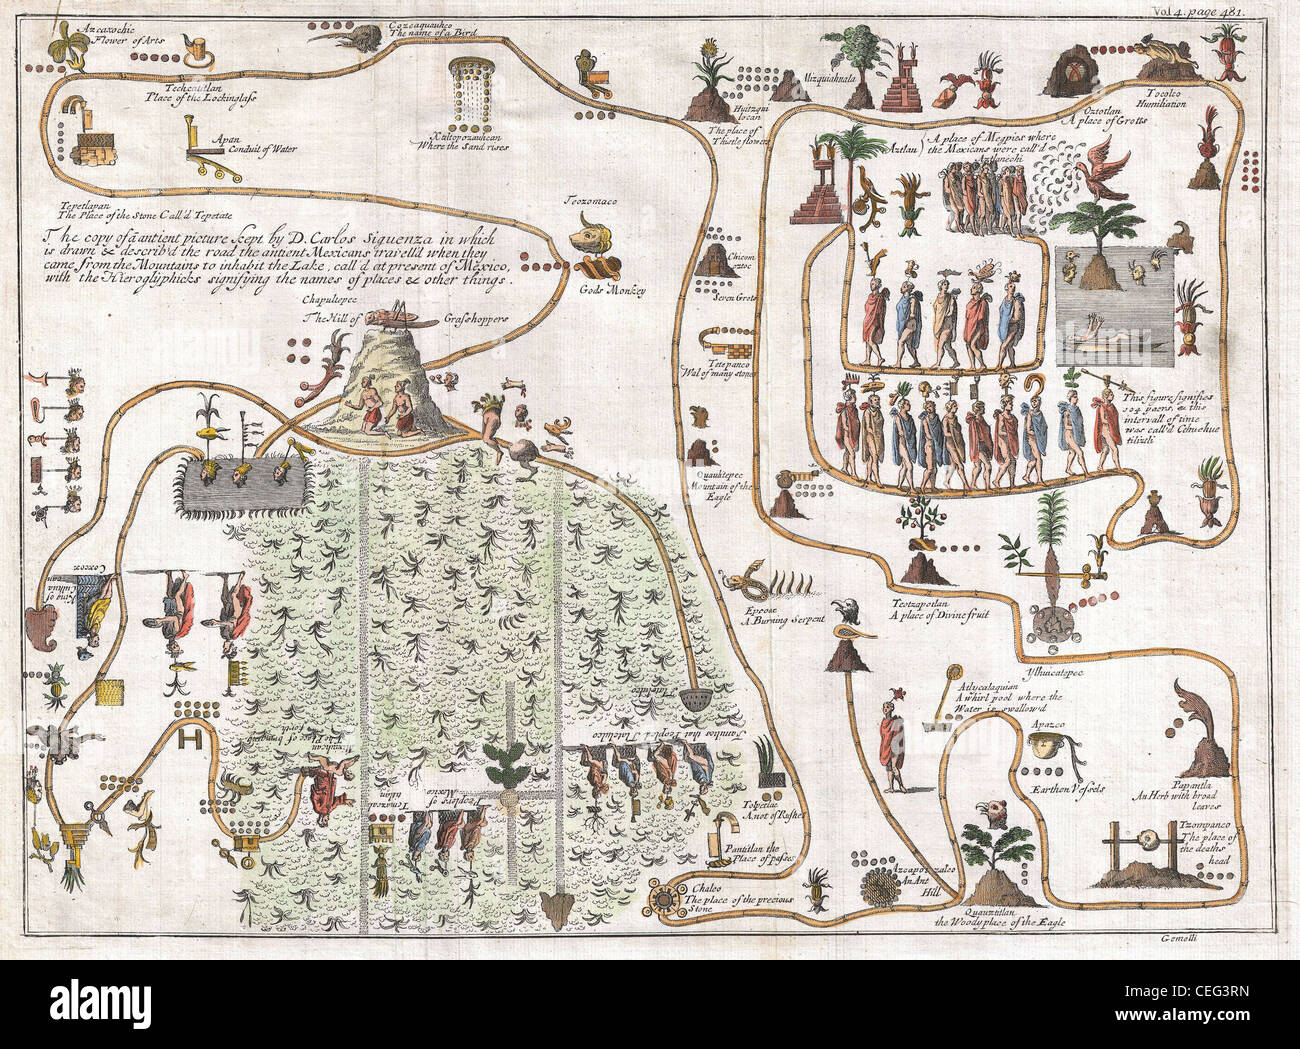 Vol 4. page 481.
Azcaxochic
Flower of Arts
Techcatitlan
Place of the Lockinglass
Cozcaquauhco
The name of a Bird
Apan
Conduit of Water
Xaltepozauhcan
Where the Sand rises
Tepetlapan
The Place of the Stone Call'd Tepetate
The copy of a antient picture kept by D. Carlos Siguenza in which
is drawn & describ'd the road the antient Mexicans travell'd when they
came from the Mountains to inhabit the Lake, call'd at present of Mexico,
with the Hieroglyphicks signifying the names of places & other things.
Teozomaco
Gods Monkey
Chapultepec
The Hill of Grasshoppers
Huitzqui
locan
The place of
Thistle flower
Mizquiahuala
Oztotlan
A place of Grotts
Tocolco
Humiliation
Aztlan
A place of Megpies where
the Mexicans were call'd
Aztlanechi
Chicom
oztoc
Seven Grots
Tetepanco
Wal of many stone
Quauhtepec
Mountain of the
Eagle
This figure signifies
104 years, & this
intervall of time
was call'd Cehuehue
tiliztli
Epcoac
A Burning Serpent
Teotzapotlan
A place of Divine fruit
Ylhuicatepec
Atlycalaquian
A whirl pool where the
Water is swallow'd
Apazco
Earthen Vessels
Papantla
An Herb with broad
leaves
Tzompanco
The place of
the deaths
head
Tolpetlac
A not of Rushes
Pantitlan the
Place of passes
Chalco
The place of the precious
Stone
Azcapotzalco
An Ant
Hill
Quauztitlan
the Woody place of the Eagle
King of
Culhua
can
Coxcox
The Place of
Tlatelulco
Families that Peopled Tlatelulco
Peoplers of
Mexico
Gemelli
alamy
Image ID: CEG3RN
www.alamy.com